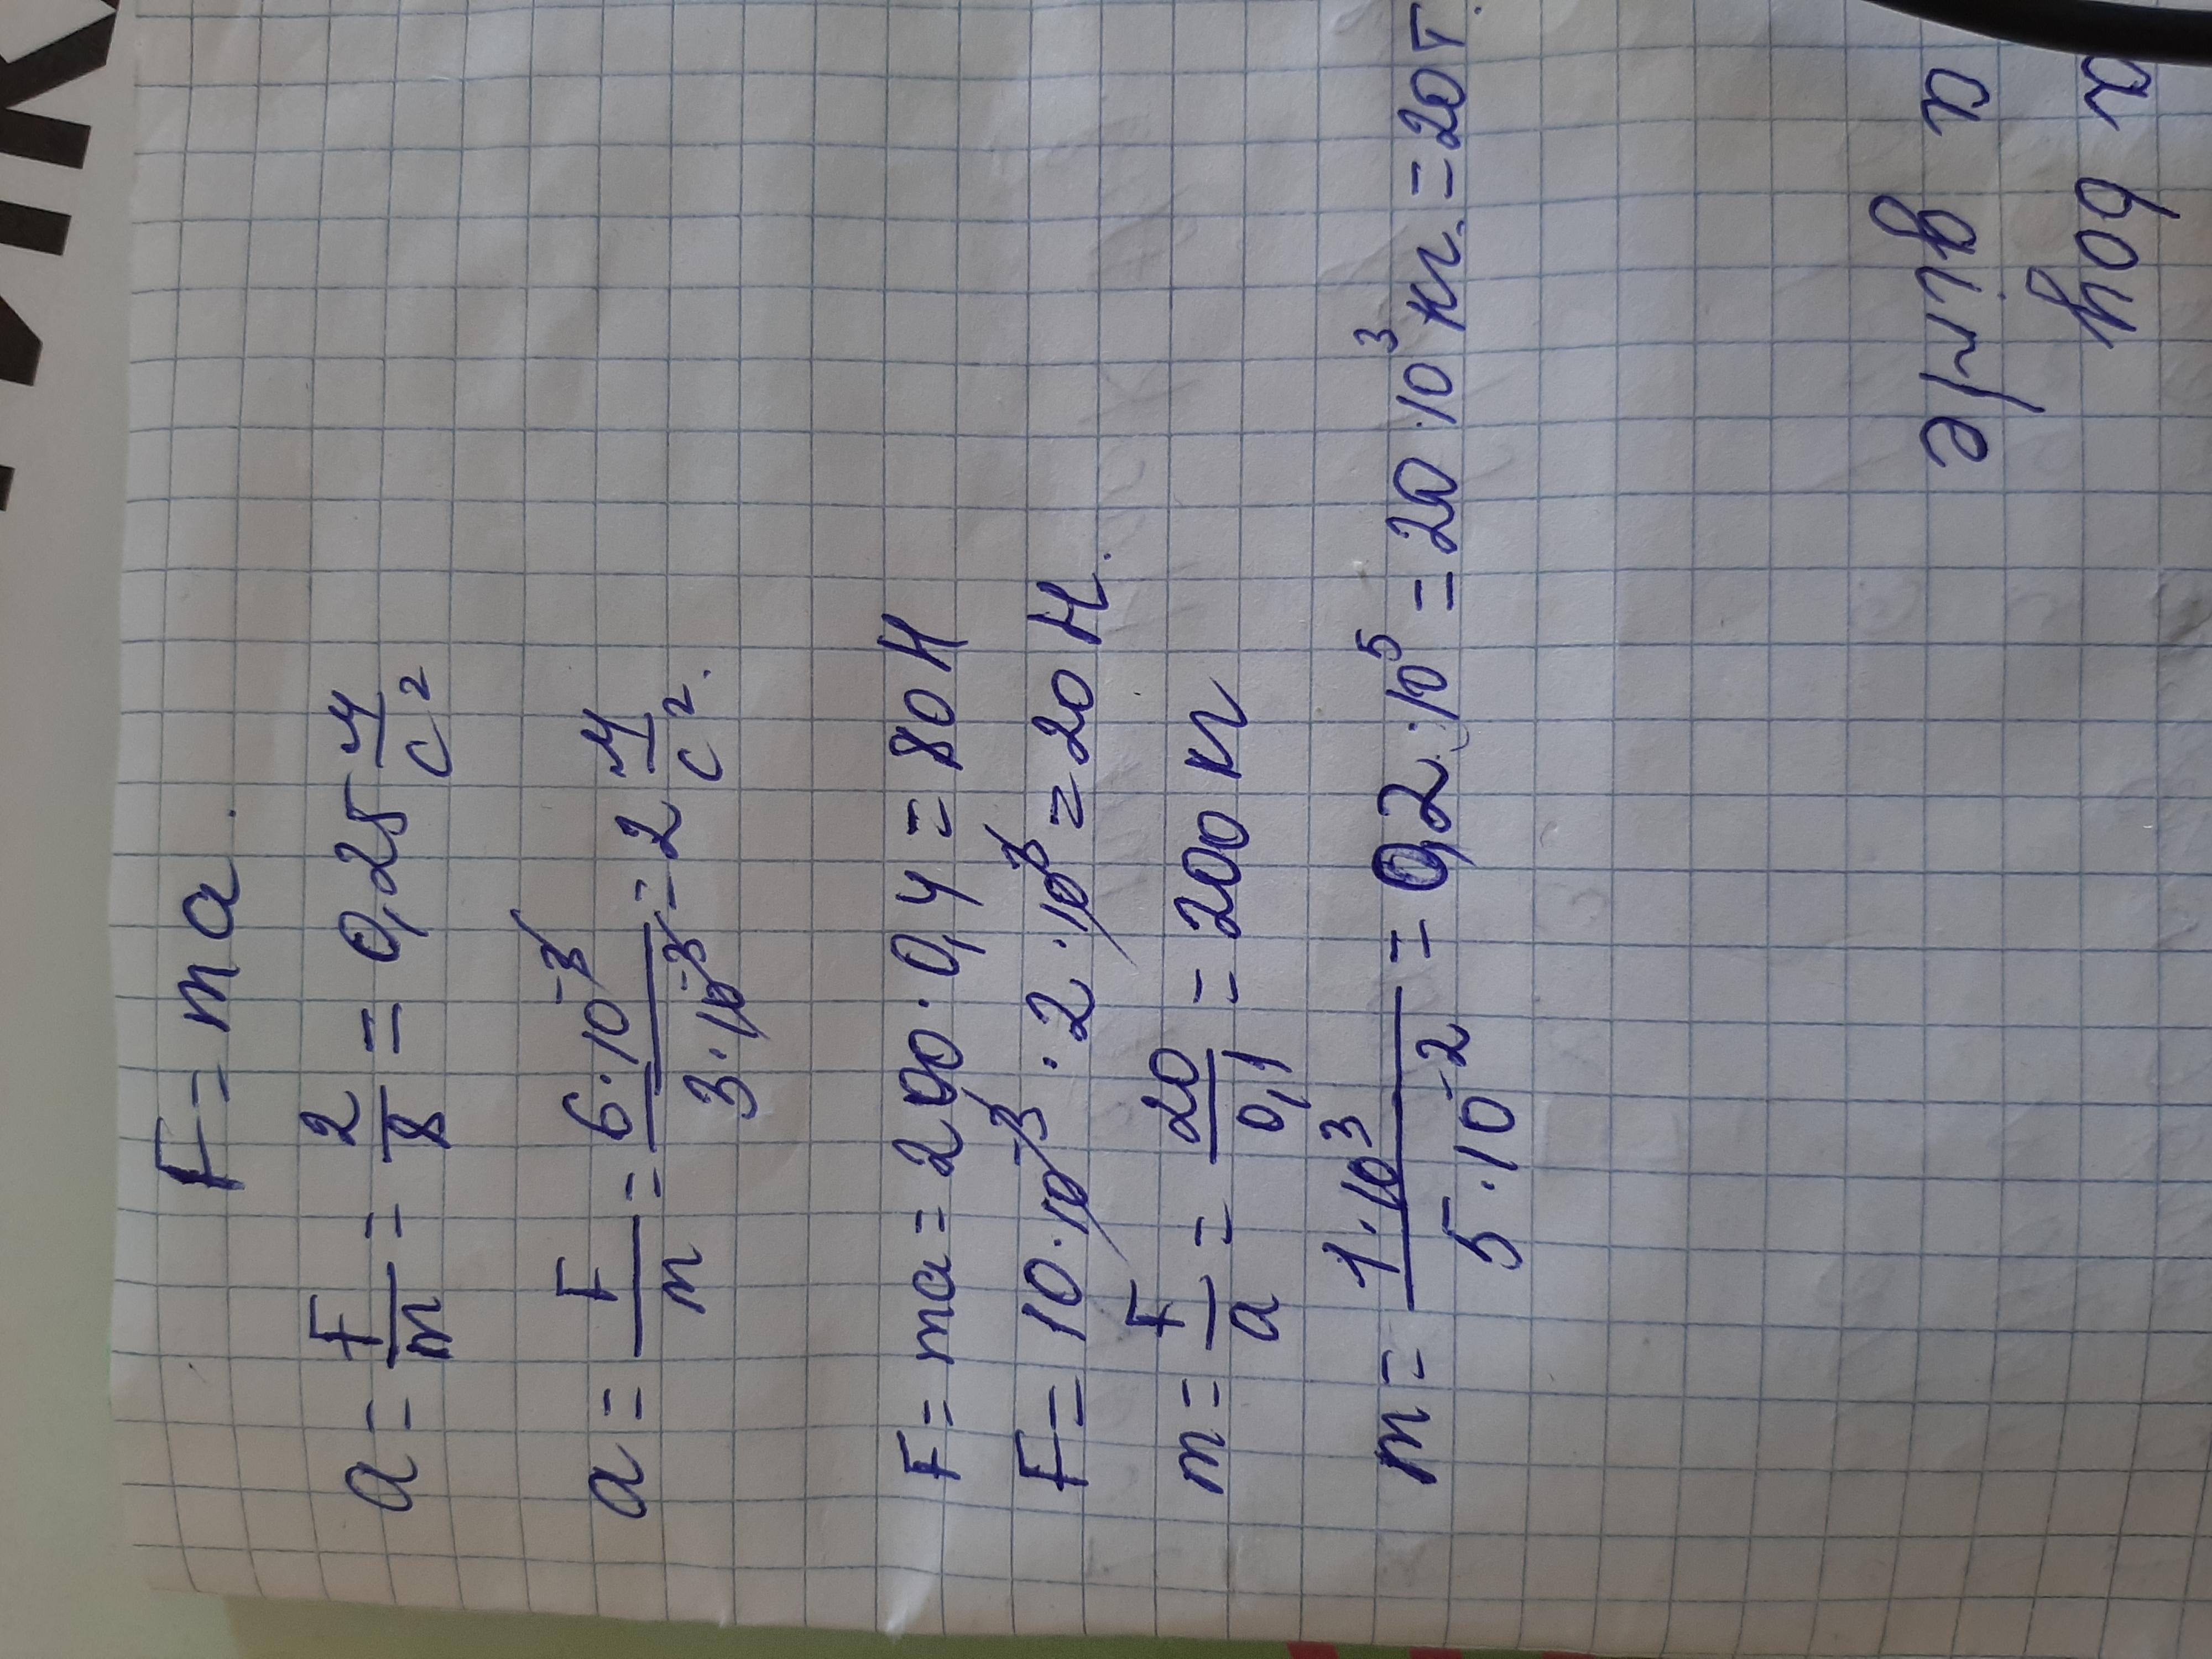 F = ma.
a = F/m = 2/8 = 0,25 м/с²
a = F/m = 6·10⁻³/3·10⁻³ = 2 м/с².
F = ma = 200·0,4 = 80 Н
F = 10·10⁻³·2·10³ = 20 Н.
m = F/a = 20/0,1 = 200 кг
m = 1·10³/5·10⁻² = 0,2·10⁵ = 20·10³ кг. = 20 т.